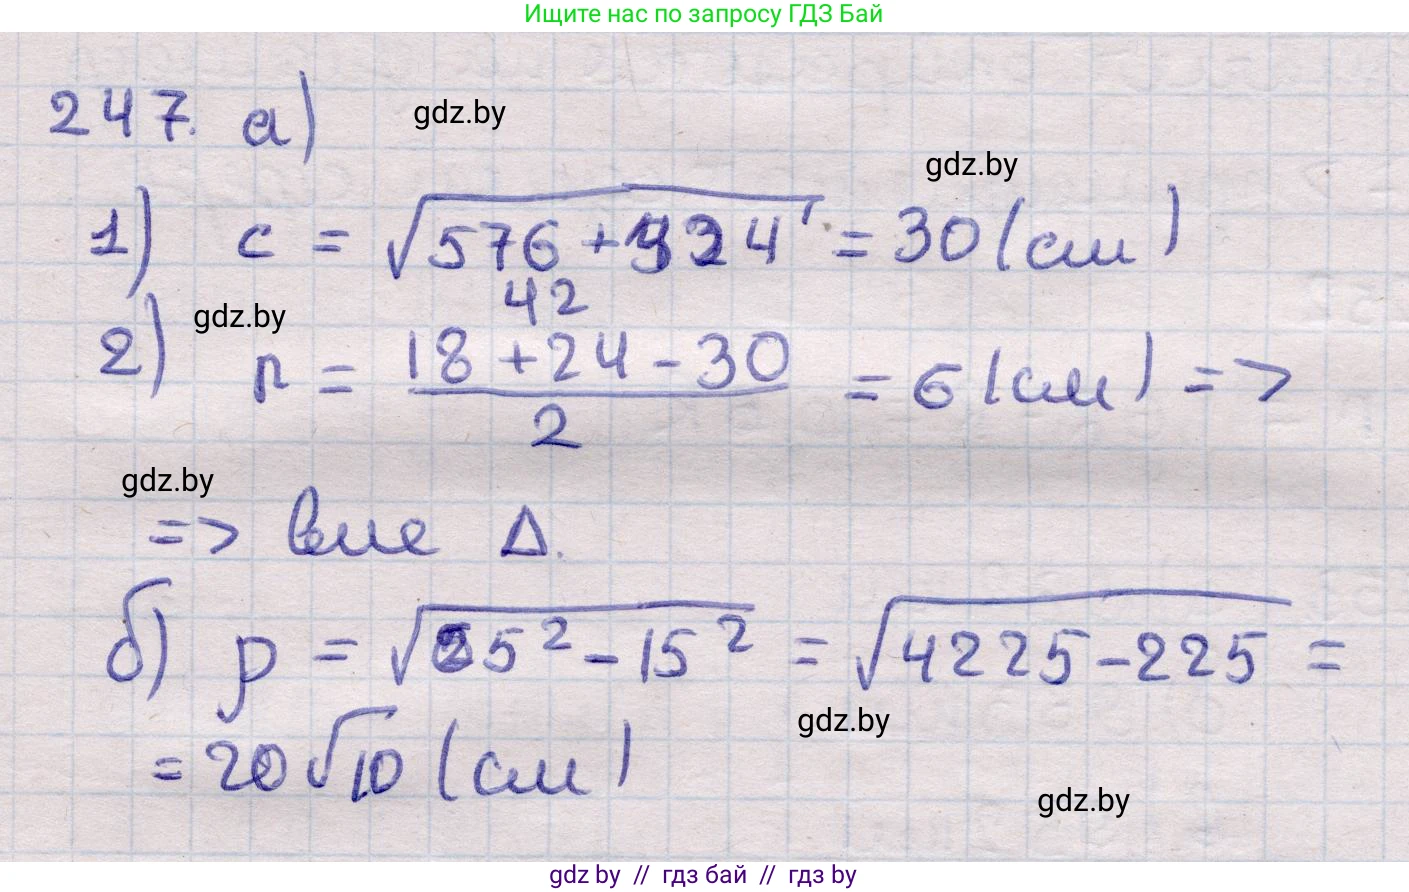 Ищите нас по запросу ГДЗ Бай
247. а)
gdz.by
gdz.by
1) c = √576 + 324 = 30 (см)
42
gdz.by
2) r = 18 + 24 - 30 / 2 = 6 (см) =>
gdz.by
=> вне Δ.
б) p = √65² - 15² = √4225 - 225 =
gdz.by
= 20√10 (см)
gdz.by
gdz by // гдз бай // гдз by